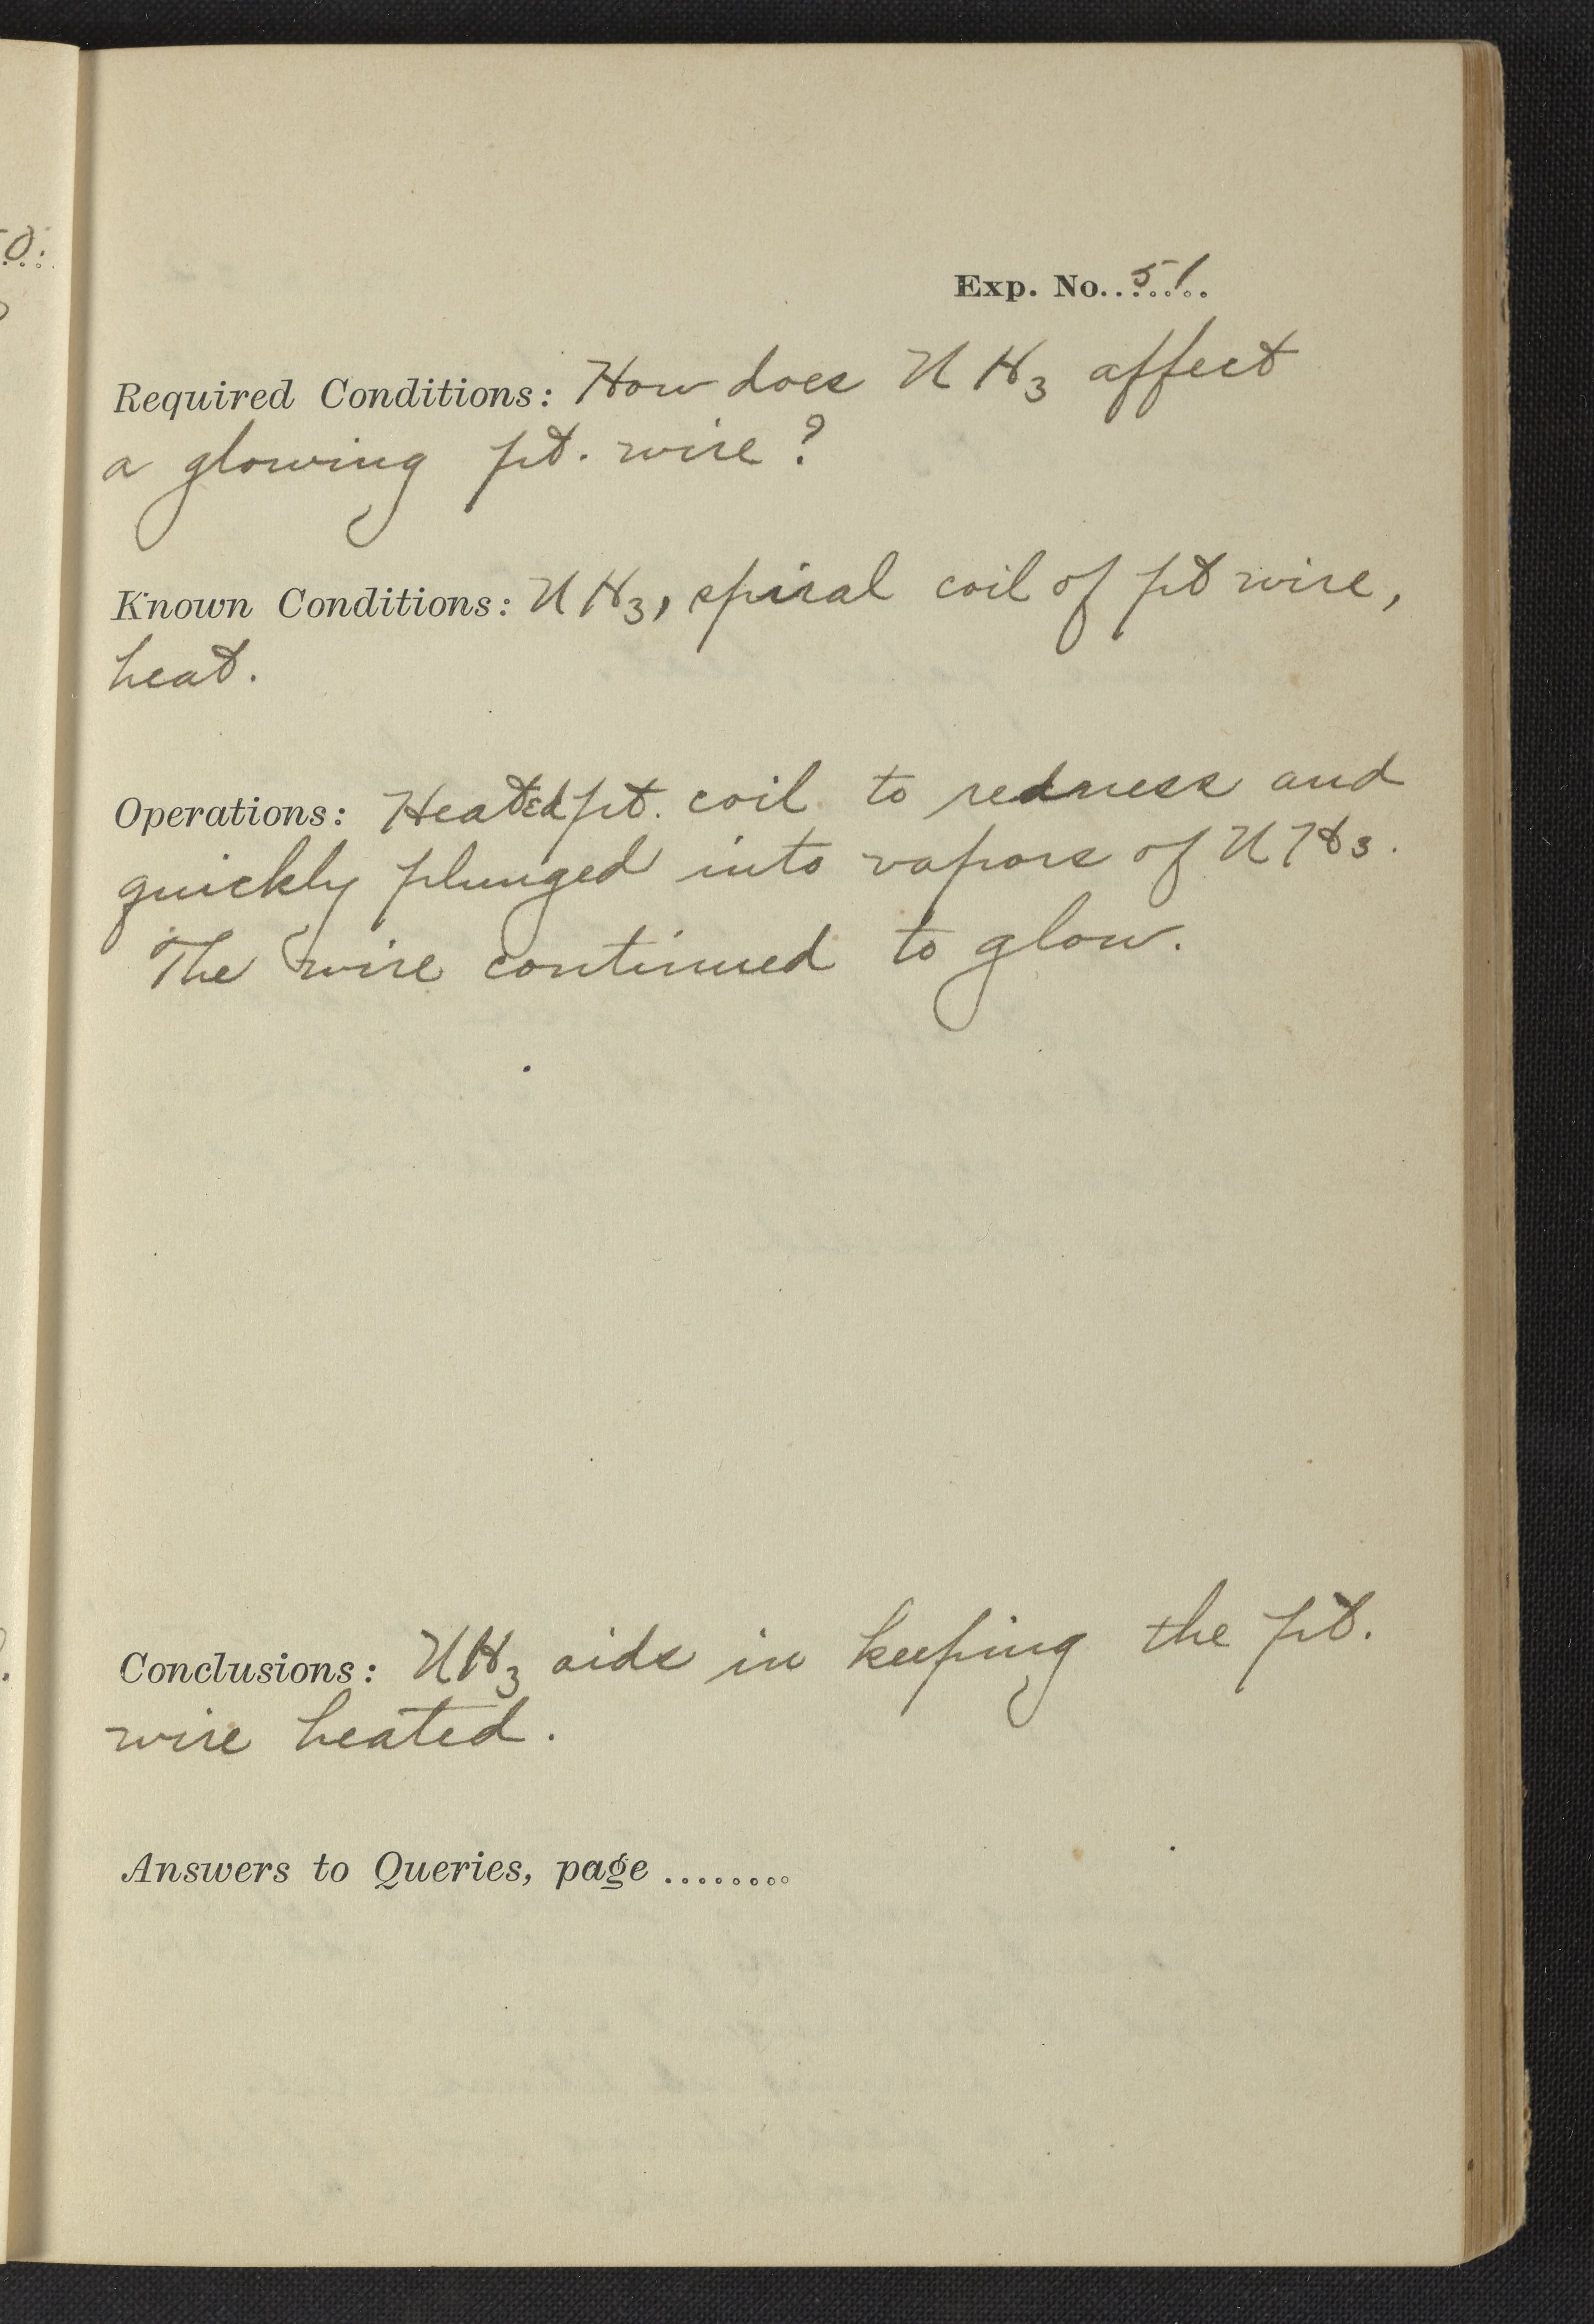 Exp. No. 51
Required Conditions: How does NH3 affect
a glowing pt. wire?
Known Conditions: NH3, spiral coil of pt wire,
heat.
Operations: Heated pt. coil to redness and
quickly plunged into vapors of NH3.
The wire continued to glow.
Conclusions: NH3 aids in keeping the pt.
wire heated.
Answers to Queries, page ........